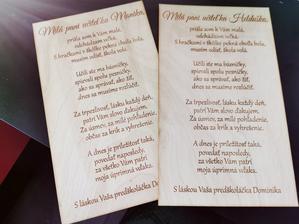 Milá pani učiteľka Monika,
prišla som k Vám malá,
odchádzam veľká.
S hračkami v škôlke pekná chvíľa bola,
musím odísť, škola volá.
Učili ste ma básničky,
spievali spolu pesničky,
ako sa správať, ako žiť,
dnes sa musíme rozlúčiť.
Za trpezlivosť, lásku každý deň,
patrí Vám slovo ďakujem.
Za úsmev, za milé pohladenie,
občas za krik a vyhrešenie.
A dnes je príležitosť taká,
povedať naposledy,
za všetko Vám patrí
moja úprimná vďaka.
S láskou Vaša predškoláčka Dominika
Milá pani učiteľka
prišla som k Vám malá,
odchádzam veľká.
S hračkami v škôlke pekná chvíľa bola,
musím odísť, škola volá.
Učili ste ma básničky,
spievali spolu pesničky,
ako sa správať, ako žiť,
dnes sa musíme rozlúčiť.
Za trpezlivosť, lásku každý deň,
patrí Vám slovo ďakujem.
Za úsmev, za milé pohladenie,
občas za krik a vyhrešenie.
A dnes je príležitosť taká,
povedať naposledy,
za všetko Vám patrí
moja úprimná vďaka.
S láskou Vaša predškoláčka Dominika